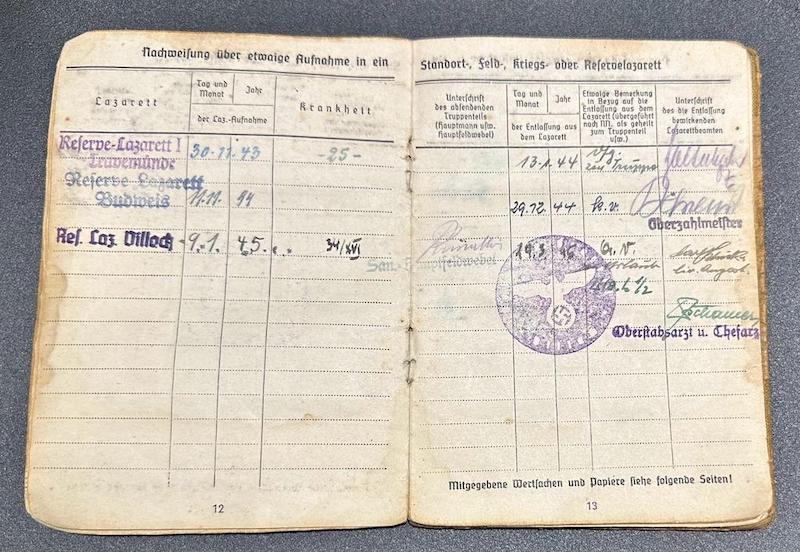 Nachweisung über etwaige Aufnahme in ein
Lazarett
Tag und Monat
Jahr
der Laz.-Aufnahme
Krankheit
Reserve-Lazarett I
Travemünde
30.11.43
-25-
Reserve-Lazarett
Budweis
11.11. 44
Res. Laz. Villach
9.1. 45.
34/XVI
12
Standort-, Feld-, Kriegs- oder Reservelazarett
Unterschrift
des absendenden
Truppenteils
(Hauptmann usw.
Hauptfeldwebel)
Tag und Monat
Jahr
der Entlassung aus
dem Lazarett
Etwaige Bemerkung
in Bezug auf die
Entlassung aus dem
Lazarett (übergeführt
nach NN, als geheilt
zum Truppenteil
usw.)
Unterschrift
des die Entlassung
bewirkenden
Lazarettbeamten
13.1. 44
zur Truppe
29.12. 44
k.v.
Oberzahlmeister
19.3.
Oberstabsarzt u. Chefarzt
Mitgegebene Wertsachen und Papiere siehe folgende Seiten!
13